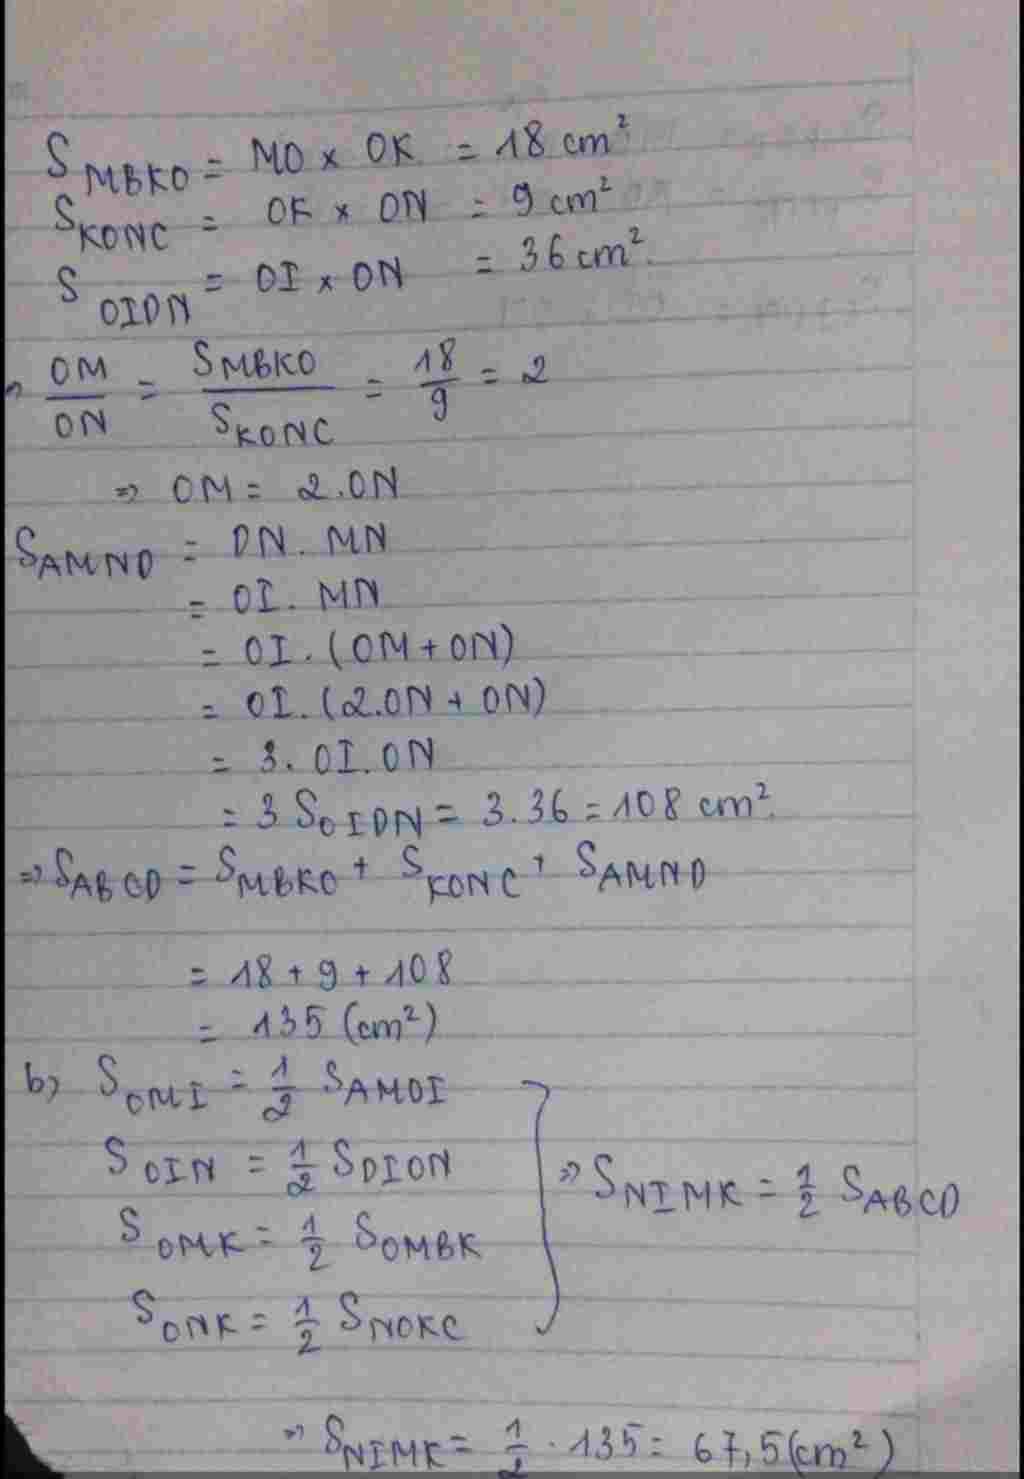 S MBKO = MO × OK = 18 cm²
S KONC = OK × ON = 9 cm²
S OIDN = OI × ON = 36 cm².
=> OM/ON = S MBKO / S KONC = 18/9 = 2
=> OM = 2.ON
S AMND = DN. MN
= OI. MN
= OI. (OM + ON)
= OI. (2.ON + ON)
= 3. OI. ON
= 3 S OIDN = 3.36 = 108 cm².
=> S ABCD = S MBKO + S KONC + S AMND
= 18 + 9 + 108
= 135 (cm²)
b) S OMI = 1/2 S AMOI
S OIN = 1/2 S DION
=> S NIMK = 1/2 S ABCD
S OMK = 1/2 S OMBK
S ONK = 1/2 S NOKC
=> S NIMK = 1/2 . 135 = 67,5 (cm²)